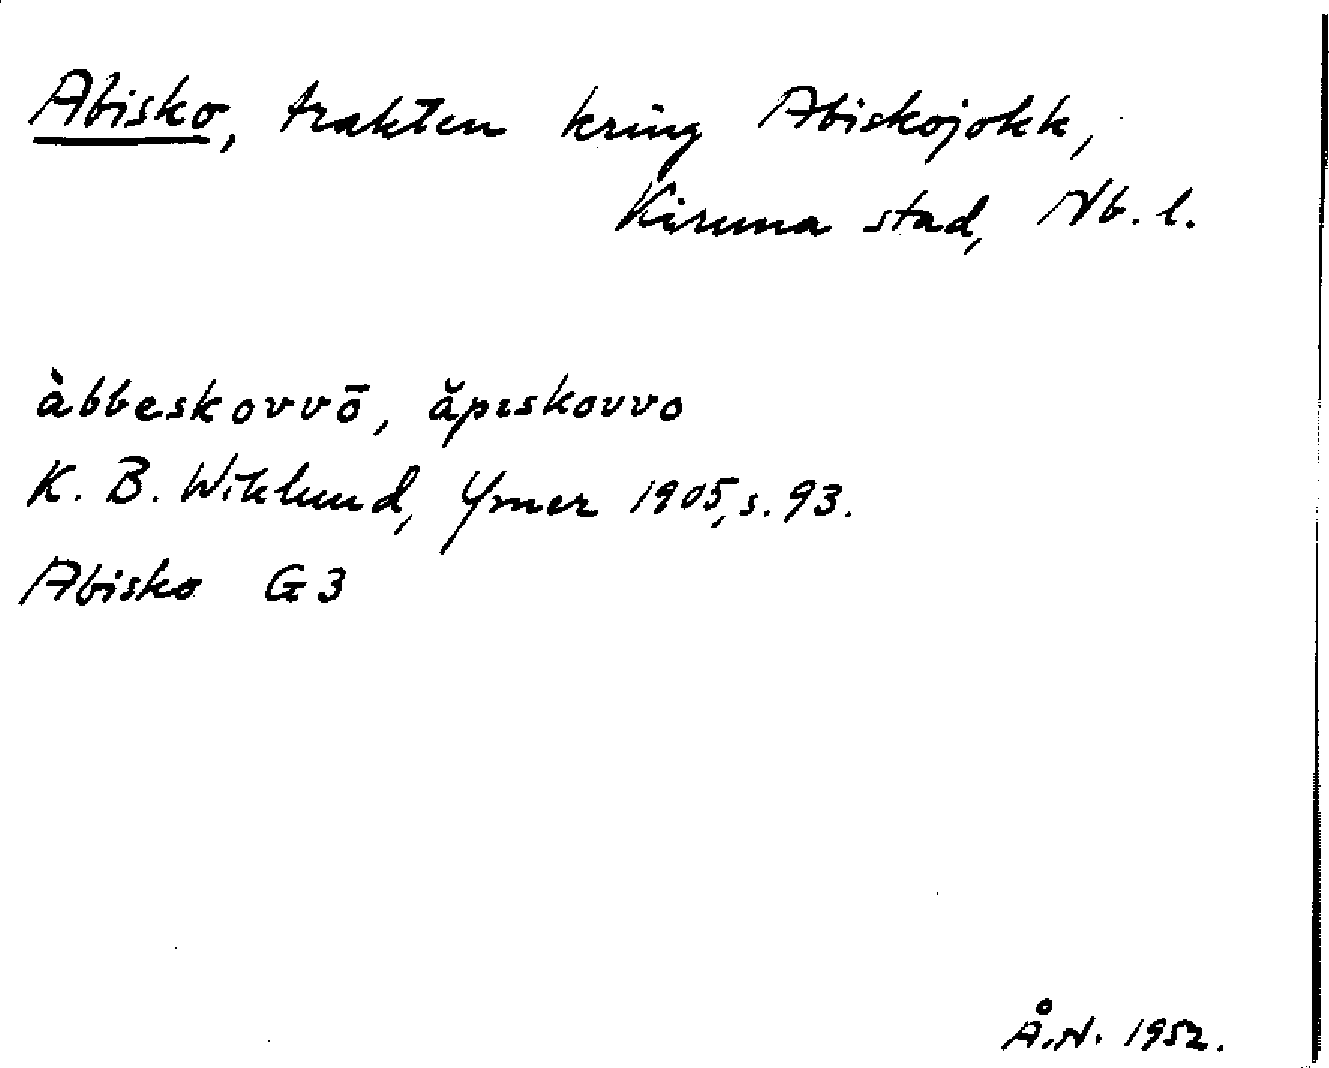 Abisko, trakten kring Abiskojokk,
Kiruna stad, Nb. l.
àbbeskovvō, ăpɪskovvo
K. B. Wiklund, Ymer 1905, s. 93.
Abisko G3
Å.N. 1952.